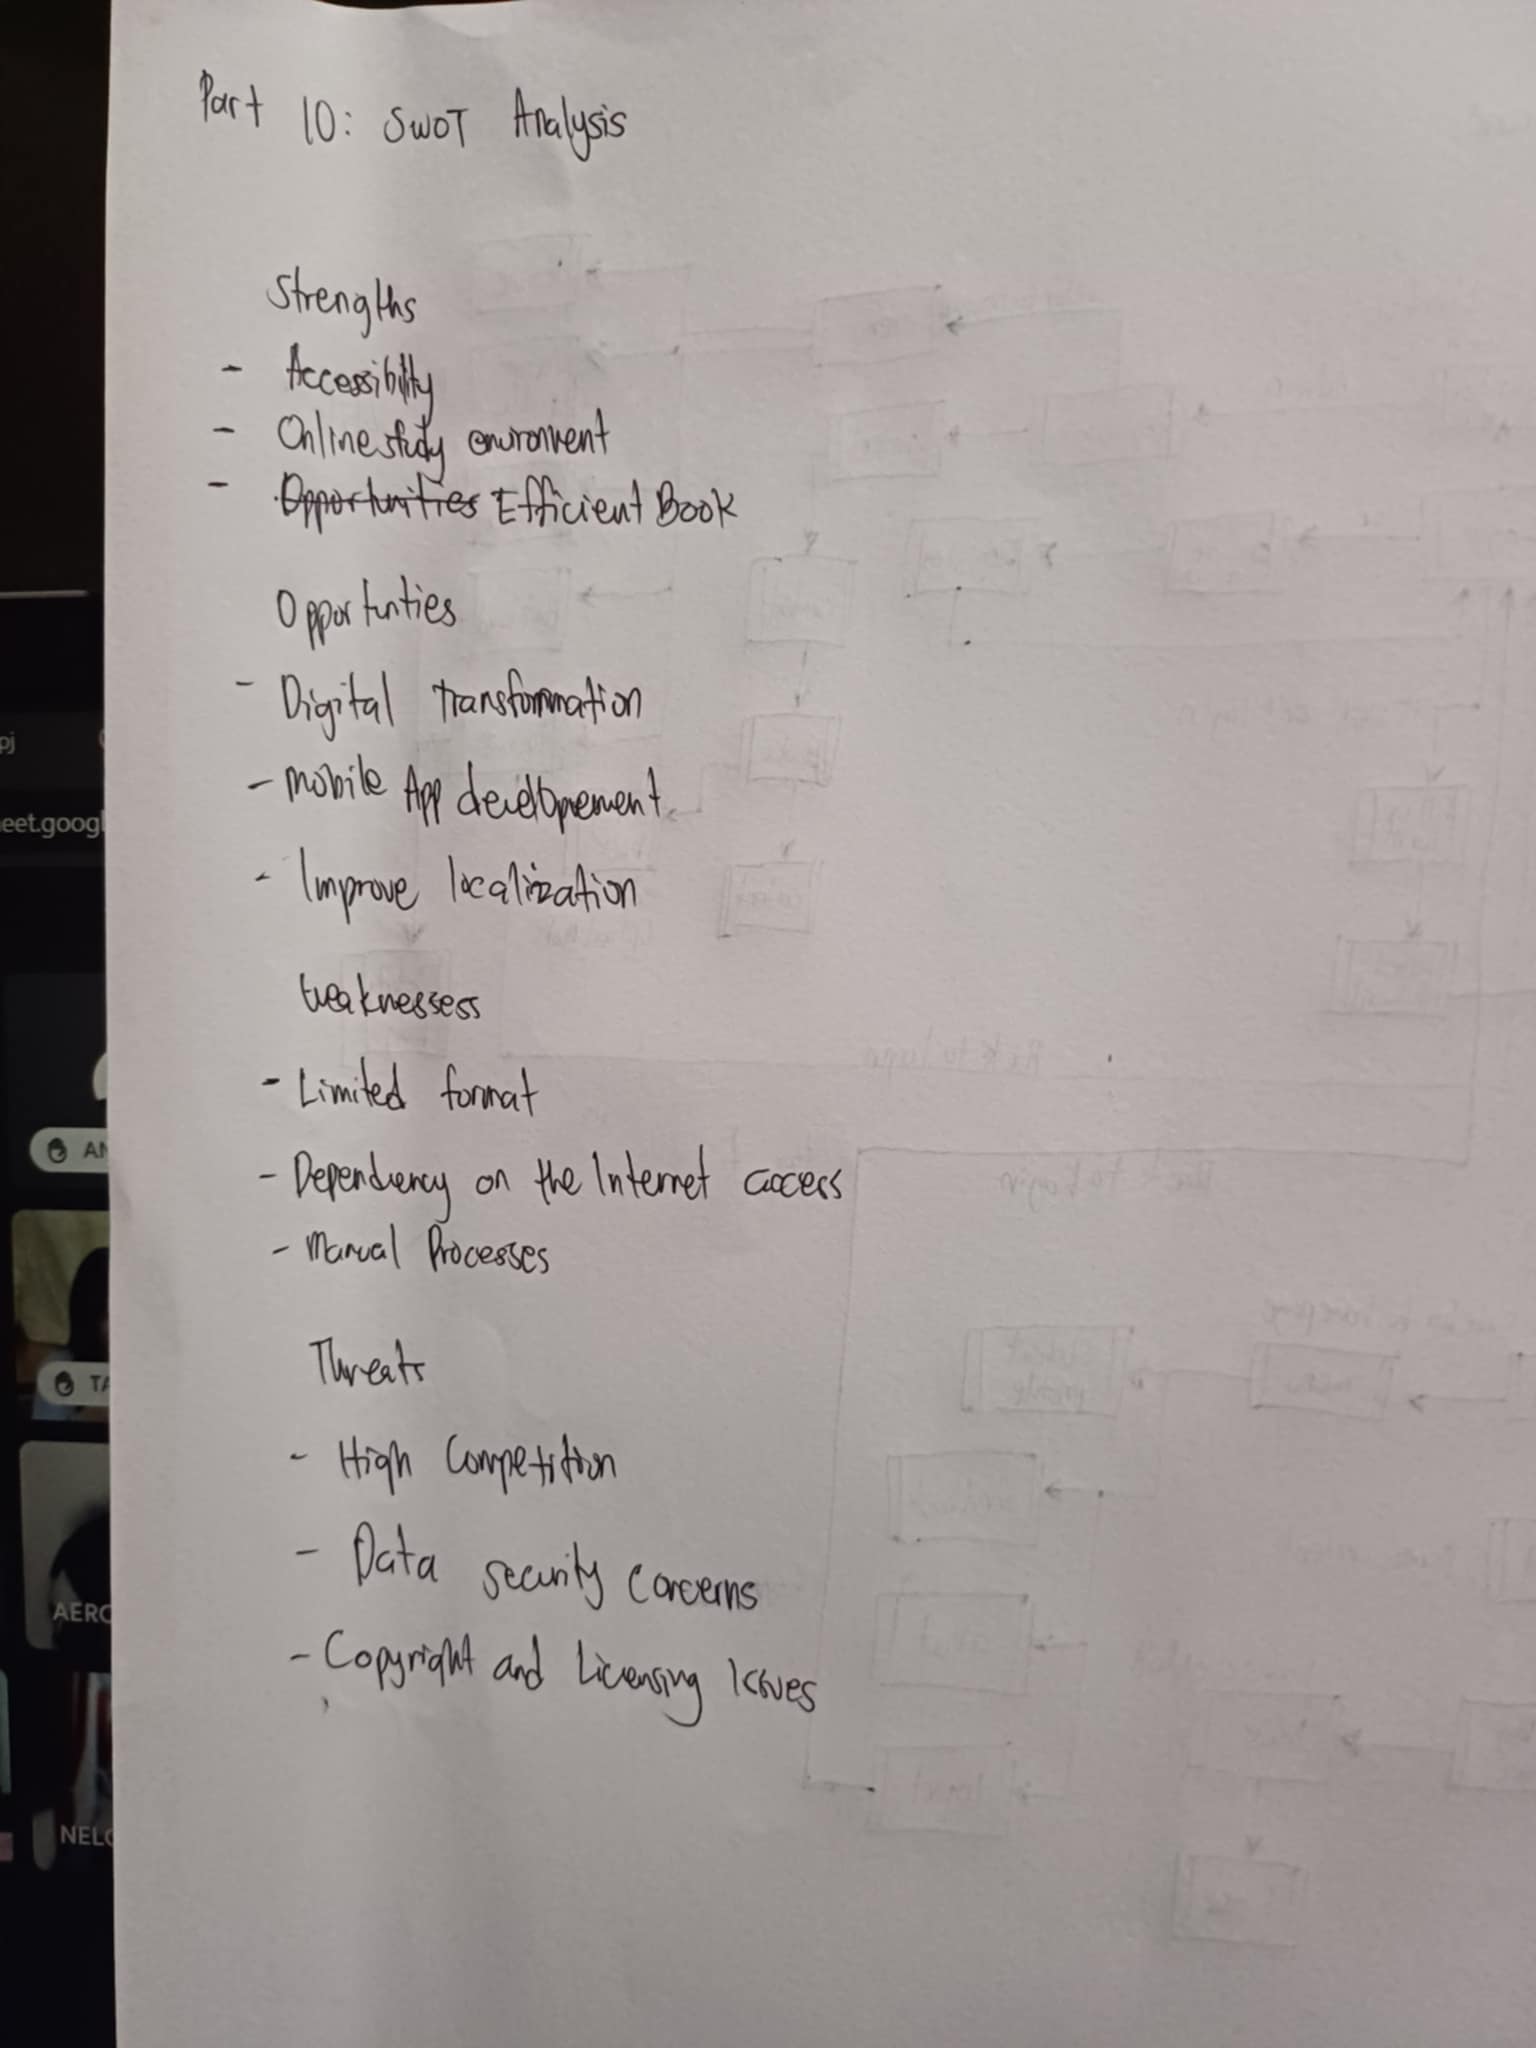 Part 10: SWOT Analysis
Strengths
- Accessibility
- Online study environment
- Opportunities Efficient Book
Opportunties
- Digital transformation
- Mobile App developement
- Improve localization
Weaknessess
- Limited format
- Dependency on the Internet access
- Manual Processes
Threats
- High Competition
- Data security concerns
- Copyright and Licensing Issues
pj
eet.googl
AN
TA
AERO
NELO